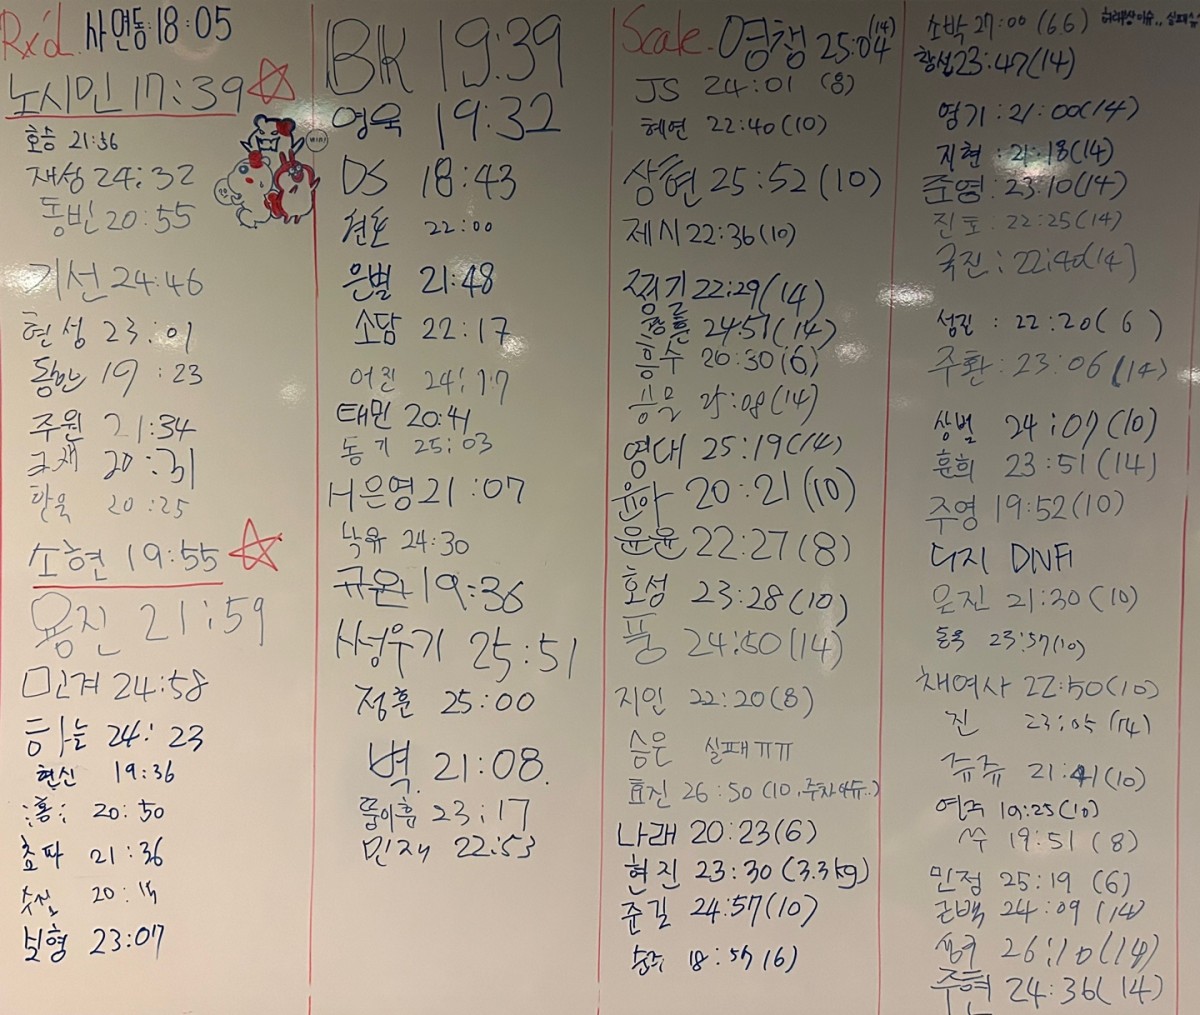 Rx'd. 사연동 18:05
노시민 17:39
호승 21:36
재성 24:32
동빈 20:55
기선 24:46
현성 23:01
동한 19:23
주원 21:34
규재 20:31
한욱 20:25
소현 19:55
용진 21:59
민겨 24:58
하늘 24:23
현신 19:36
:홍: 20:50
초파 21:36
20:14
보형 23:07
BK 19:39
영욱 19:32
DS 18:43
22:00
은별 21:48
소담 22:17
어진 24:17
태민 20:41
동기 25:03
서은영 21:07
낙유 24:30
규완 19:36
사성우기 25:51
정훈 25:00
벽 21:08.
뚱이흄 23:17
민재 22:53
Scale. 영챔 25:04 (14)
JS 24:01 (8)
혜연 22:40 (10)
상현 25:52 (10)
제시 22:36 (10)
찡긋 22:29 (14)
24:51 (14)
흥수 20:30 (6)
25:08 (14)
영대 25:19 (14)
윤아 20:21 (10)
윤윤 22:27 (8)
호성 23:28 (10)
풍 24:50 (14)
지인 22:20 (8)
승은 실패ㅠㅠ
효진 26:50 (10, 주차이슈..)
나래 20:23 (6)
현진 23:30 (3.3kg)
준길 24:57 (10)
18:57 (6)
소박 27:00 (6.6)
황섭 23:47 (14)
영기 : 21:00 (14)
지현 : 21:18 (14)
준영 : 23:10 (14)
진토 : 22:25 (14)
국진 : 22:40 (14)
성진 : 22:20 (6)
주환 : 23:06 (14)
상별 24:07 (10)
훈희 23:51 (14)
주영 19:52 (10)
디지 DNF!
은진 21:30 (10)
23:57 (10)
채여사 22:50 (10)
진 (14)
쥬쥬 21:41 (10)
연주 19:25 (10)
쑤 19:51 (8)
민정 25:19 (6)
근백 24:09 (14)
26:10 (14)
주현 24:36 (14)